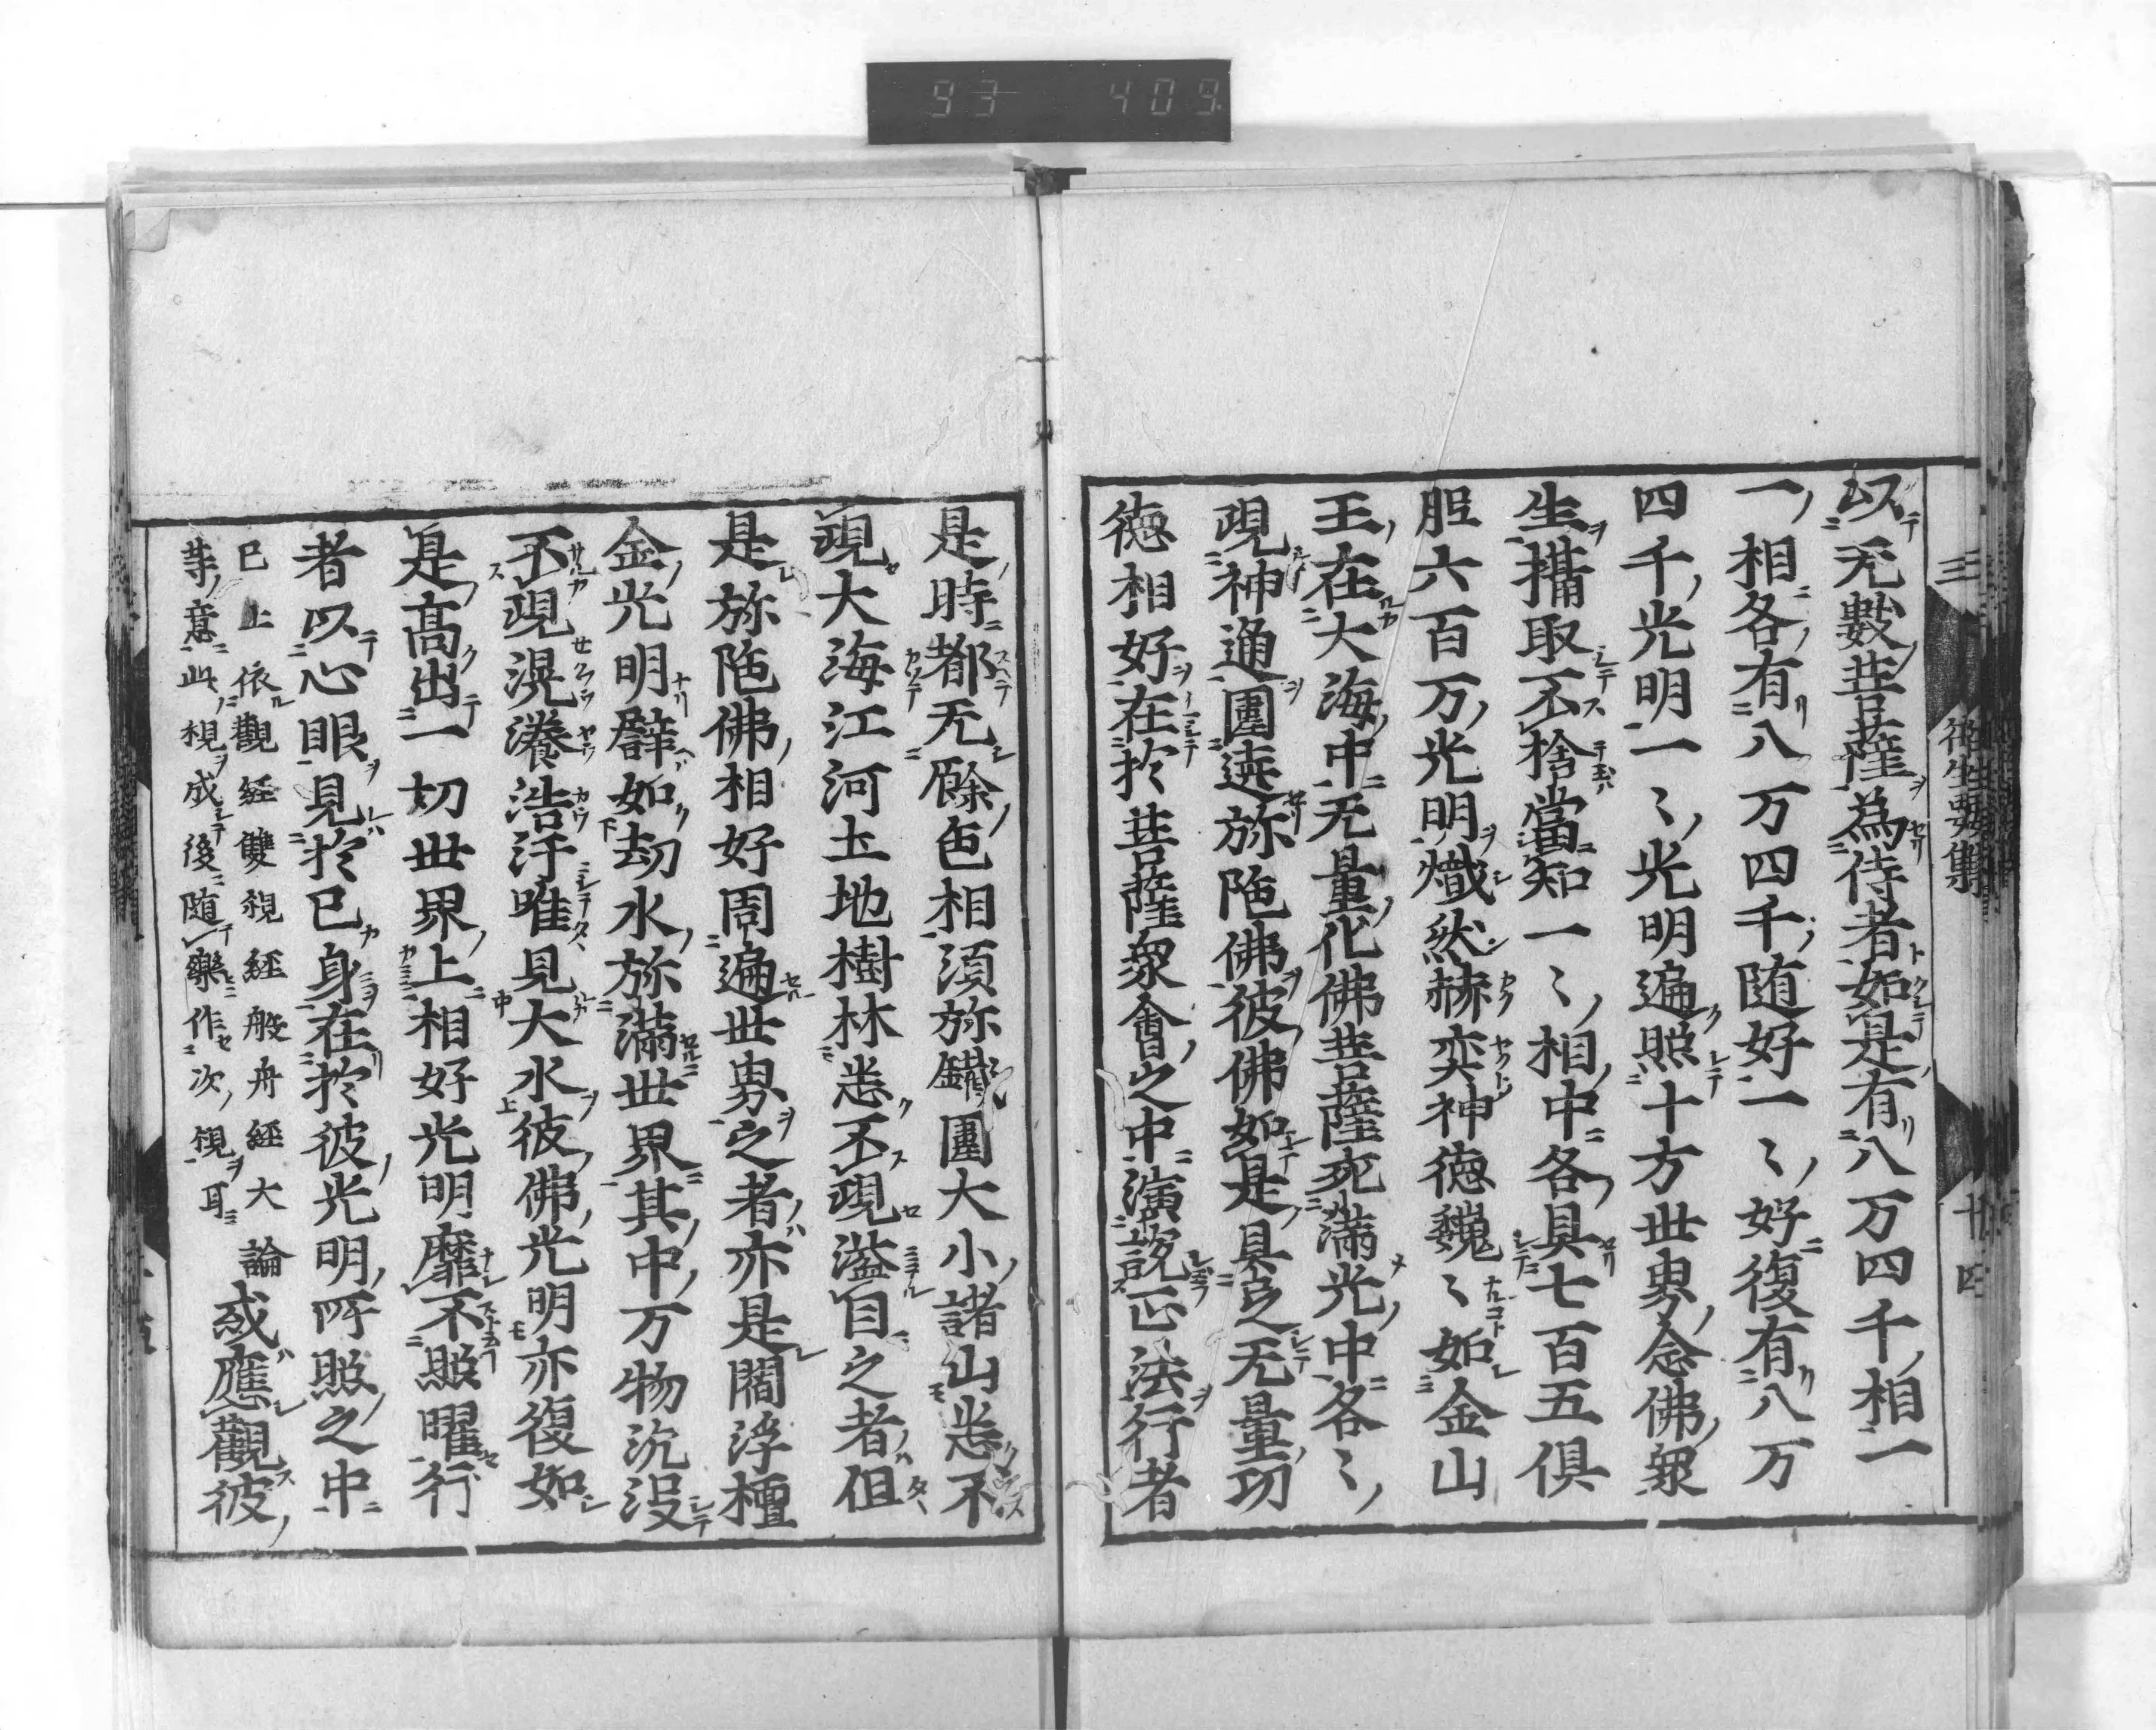 93 409
以无數菩薩為侍者如是有八万四千相一
一相各有八万四千随好一〻好復有八万
四千光明一〻光明遍照十方世界念佛衆
生攝取不捨當知一〻相中各具七百五俱
胝六百万光明熾然赫奕神徳巍〻如金山
王在大海中无量化佛菩薩充滿光中各〻
現神通圍遶弥陁佛彼佛如是具足无量功
徳相好在於菩薩衆會之中演説正法行者
是時都无餘色相須弥鐵圍大小諸山悉不
現大海江河土地樹林悉不現溢目之者但
是弥陁佛相好周遍世界之者亦是閻浮檀
金光明譬如劫水弥滿世界其中万物沉沒
不現滉瀁浩汗唯見大水彼佛光明亦復如
是髙出一切世界上相好光明靡不照曜行
者以心眼見於己身在於彼光明所照之中
已上依觀經雙觀經般舟經大論
等意此觀成後随樂作次觀耳
或應觀彼